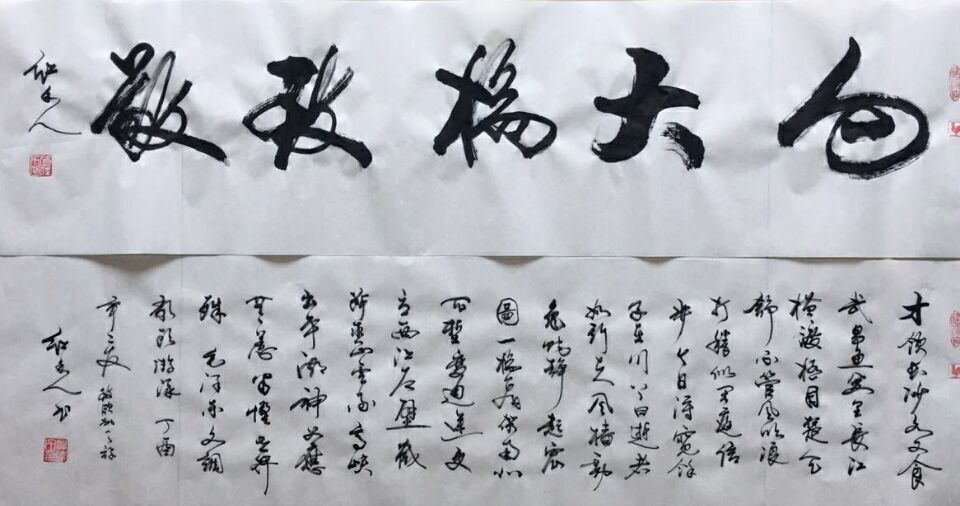 向大橋致敬
才饮长沙水又食
武昌鱼万里长江
横渡极目楚天
舒不管风吹浪
打胜似闲庭信
步今日得宽馀
子在川上曰逝者
如斯夫风樯动
龟蛇静起宏
圖一桥飞架南北
天堑变通途更
立西江石壁截
断巫山云雨高峡
出平湖神女应
无恙当惊世界
殊 毛泽东水调
歌头游泳 丁酉